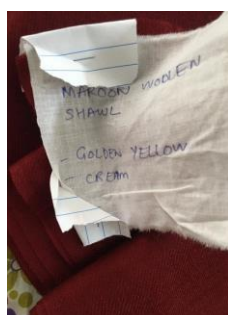 MAROON WOOLEN
SHAWL
- GOLDEN YELLOW
- CREAM